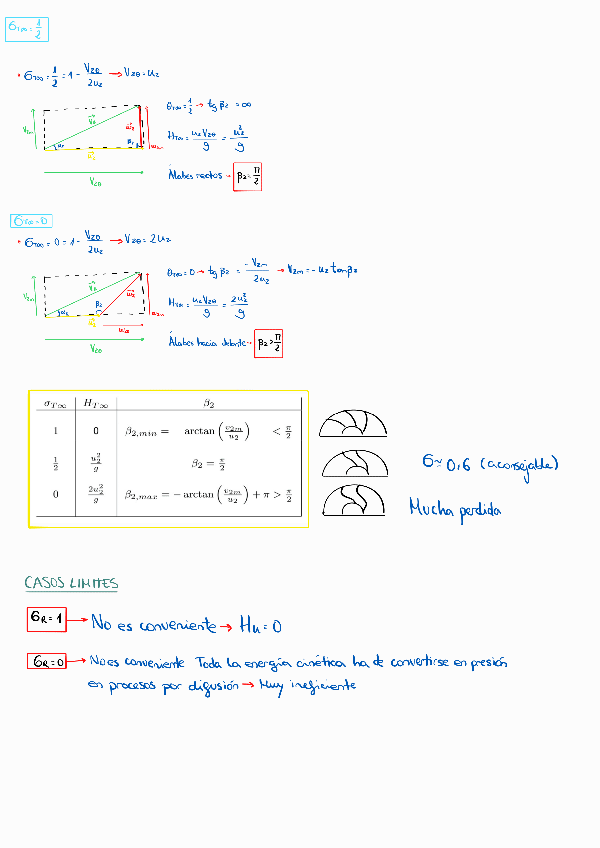 σT∞ = 1/2
• σT∞ = 1/2 = 1 - V2θ/2u2 → V2θ = u2
σT∞ = 1/2 → tg β2 = ∞
HT∞ = u2V2θ/g = u2²/g
Álabes rectos → β2 = π/2
V2m
V2
w2
α2
β2
w2m
V2θ
σT∞ = 0
• σT∞ = 0 = 1 - V2θ/2u2 → V2θ = 2u2
σT∞ = 0 → tg β2 = -V2m/2u2 → V2m = -u2 tan β2
HT∞ = u2V2θ/g = 2u2²/g
Álabes hacia delante → β2 > π/2
V2m
V2
w2
α2
β2
u2
w2m
w2θ
V2θ
σT∞ HT∞ β2
1 0 β2,min = arctan(v2m/u2) < π/2
1/2 u2²/g β2 = π/2
0 2u2²/g β2,max = - arctan(v2m/u2) + π > π/2
σ ≈ 0,6 (aconsejable)
Mucha perdida
CASOS LIMITES
σR = 1 → No es conveniente → Hu = 0
σR = 0 → No es conveniente Toda la energía cinética ha de convertirse en presión
en procesos por difusión → Muy ineficiente